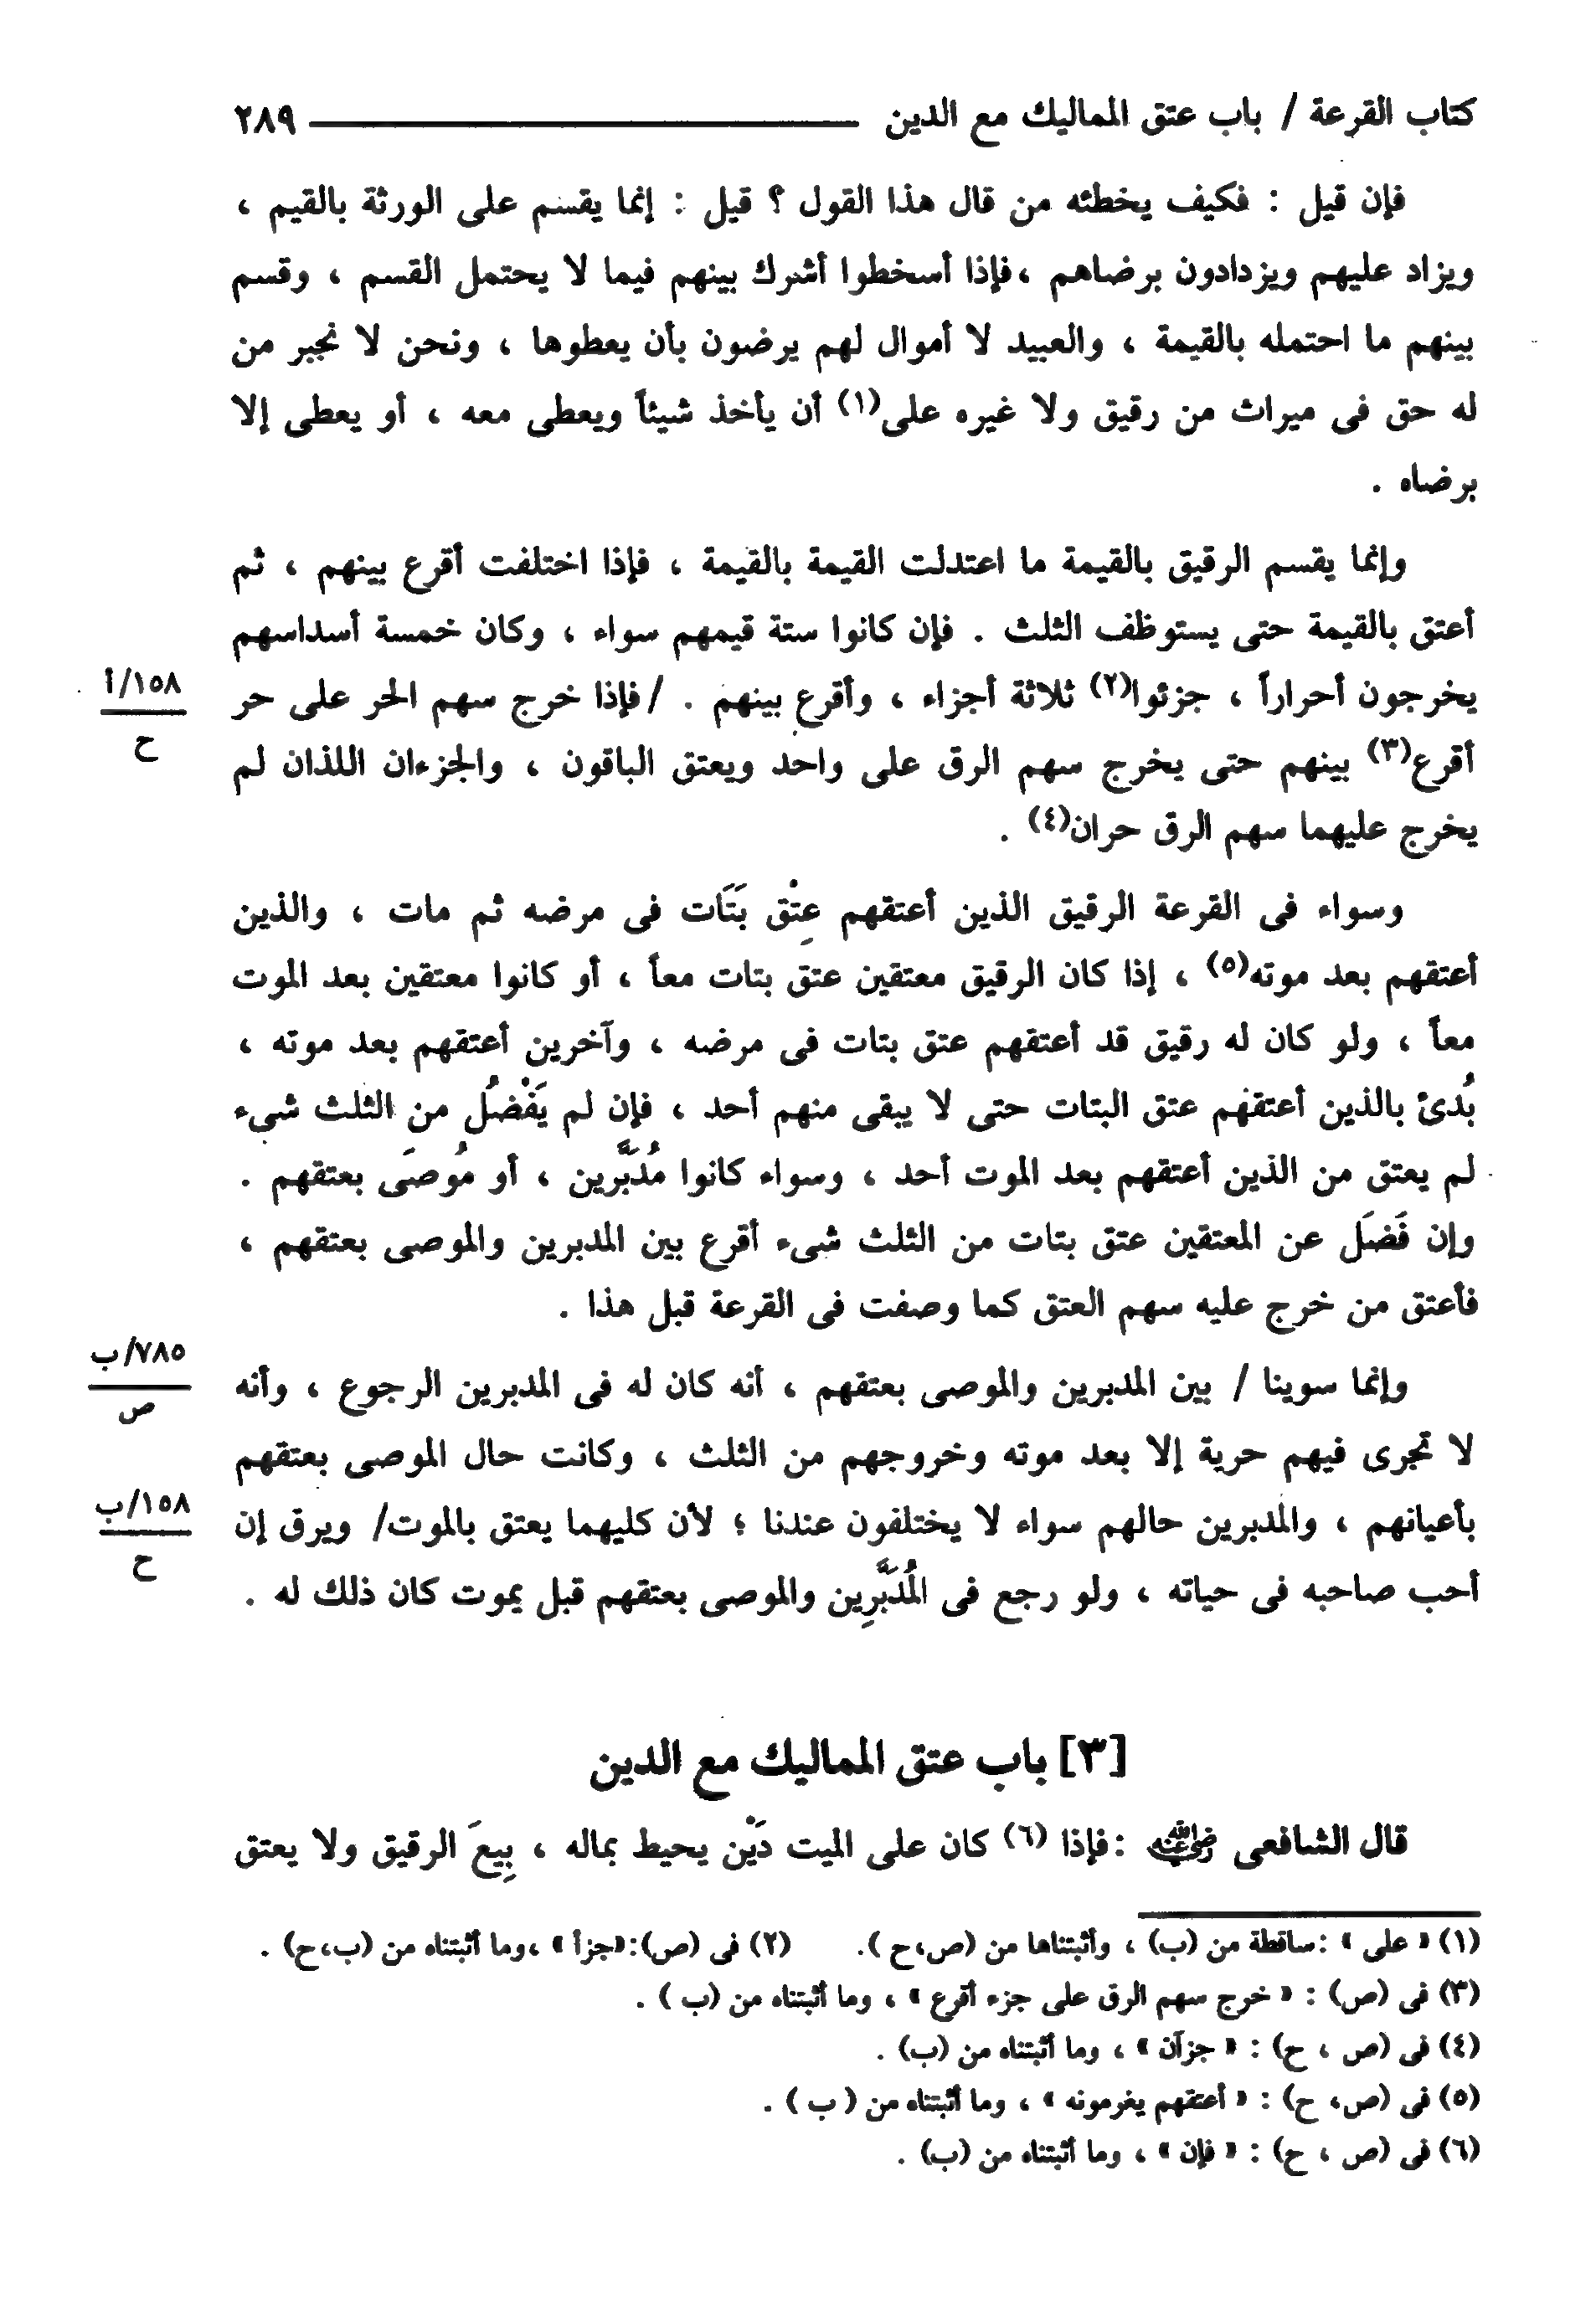 كتاب القرعة / باب عتق المماليك مع الدين ٢٨٩
فإن قيل : فكيف يخطئه من قال هذا القول ؟ قيل : إنما يقسم على الورثة بالقيم ،
ويزاد عليهم ويزدادون برضاهم ،فإذا أسخطوا أشرك بينهم فيما لا يحتمل القسم ، وقسم
بينهم ما احتمله بالقيمة ، والعبيد لا أموال لهم يرضون بأن يعطوها ، ونحن لا نجبر من
له حق فى ميراث من رقيق ولا غيره على(١) أن يأخذ شيئاً ويعطى معه ، أو يعطى إلا
برضاه .
وإنما يقسم الرقيق بالقيمة ما اعتدلت القيمة بالقيمة ، فإذا اختلفت أقرع بينهم ، ثم
أعتق بالقيمة حتى يستوظف الثلث . فإن كانوا ستة قيمهم سواء ، وكان خمسة أسداسهم
يخرجون أحراراً ، جزئوا(٢) ثلاثة أجزاء ، وأقرع بينهم . /فإذا خرج سهم الحر على حر
١٥٨/أ
ح
أقرع(٣) بينهم حتى يخرج سهم الرق على واحد ويعتق الباقون ، والجزءان اللذان لم
يخرج عليهما سهم الرق حران(٤) .
وسواء فى القرعة الرقيق الذين أعتقهم عِتْق بَتَات فى مرضه ثم مات ، والذين
أعتقهم بعد موته(٥) ، إذا كان الرقيق معتقين عتق بتات معاً ، أو كانوا معتقين بعد الموت
معاً ، ولو كان له رقيق قد أعتقهم عتق بتات فى مرضه ، وآخرين أعتقهم بعد موته ،
بُدئ بالذين أعتقهم عتق البتات حتى لا يبقى منهم أحد ، فإن لم يَفْضُل من الثلث شىء
لم يعتق من الذين أعتقهم بعد الموت أحد ، وسواء كانوا مُدَبَّرين ، أو مُوصَى بعتقهم .
وإن فَضَل عن المعتقين عتق بتات من الثلث شىء أقرع بين المدبرين والموصى بعتقهم ،
فأعتق من خرج عليه سهم العتق كما وصفت فى القرعة قبل هذا .
وإنما سوينا / بين المدبرين والموصى بعتقهم ، أنه كان له فى المدبرين الرجوع ، وأنه
٧٨٥/ب
ص
لا تجرى فيهم حرية إلا بعد موته وخروجهم من الثلث ، وكانت حال الموصى بعتقهم
بأعيانهم ، والمدبرين حالهم سواء لا يختلفون عندنا ؛ لأن كليهما يعتق بالموت/ ويرق إن
١٥٨/ب
ح
أحب صاحبه فى حياته ، ولو رجع فى المُدَبَّرِين والموصى بعتقهم قبل يموت كان ذلك له .
[٣] باب عتق المماليك مع الدين
قال الشافعى رضي الله عنه :فإذا (٦) كان على الميت دَيْن يحيط بماله ، بِيعَ الرقيق ولا يعتق
(١) « على » :ساقطة من (ب) ، وأثبتناها من (ص،ح ). (٢) فى (ص):«جزأ » ،وما أثبتناه من (ب،ح) .
(٣) فى (ص) : « خرج سهم الرق على جزء أقرع » ، وما أثبتناه من (ب ) .
(٤) فى (ص ، ح) : « جزآن » ، وما أثبتناه من (ب) .
(٥) فى (ص، ح) : « أعتقهم يغرمونه » ، وما أثبتناه من ( ب ) .
(٦) فى (ص ، ح) : « فإن » ، وما أثبتناه من (ب) .